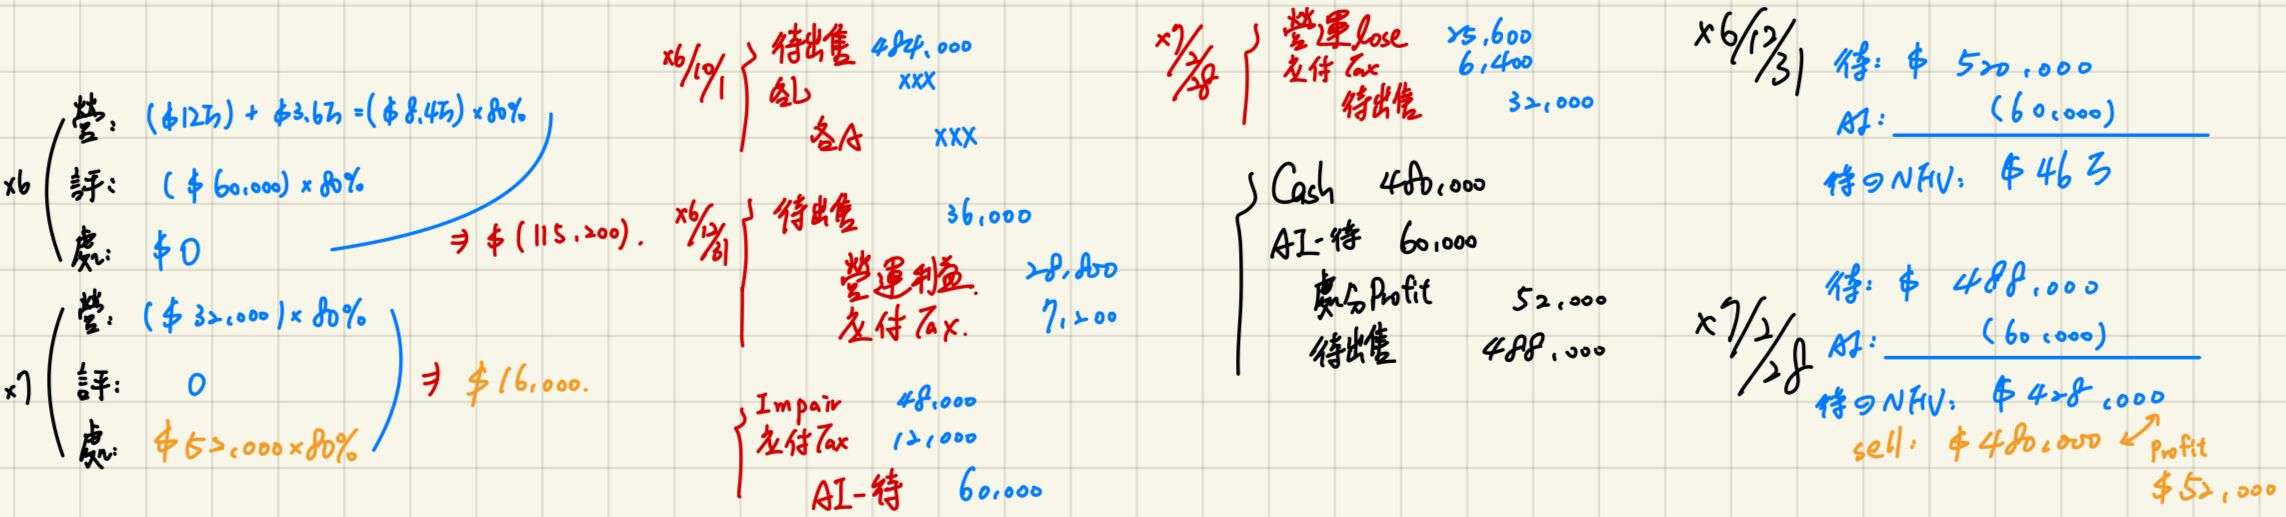 x6
營: ($12万) + $3.6万 = ($8.4万) × 80%
評: ($60,000) × 80%
處: $0
⇒ $(115,200).
x7
營: ($32,000) × 80%
評: 0
處: $52,000 × 80%
⇒ $16,000.
x6/10/1
待出售 484,000
各L xxx
各A xxx
x6/12/31
待出售 36,000
營運利益. 28,800
应付Tax. 7,200
Impair 48,000
应付Tax 12,000
AI-待 60,000
x7/2/28
營運lose 25,600
应付Tax 6,400
待出售 32,000
Cash 480,000
AI-待 60,000
處分Profit 52,000
待出售 488,000
x6/12/31
待: $ 520,000
AI: (60,000)
待の NFV: $ 46万
x7/2/28
待: $ 488,000
AI: (60,000)
待の NFV: $ 428,000
sell: $ 480,000 Profit
$52,000